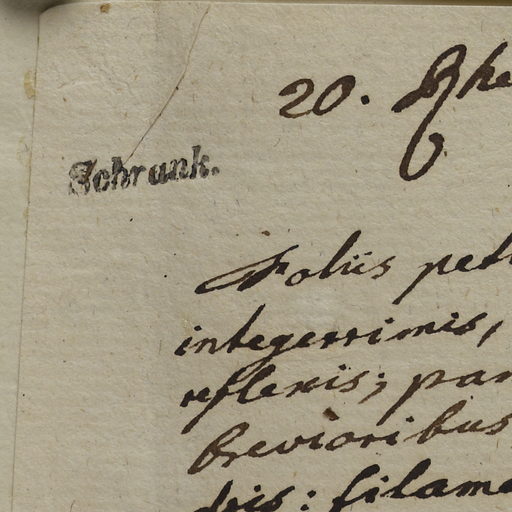 20. Rhe
Schrank.
Foliis peti
integerrimis,
reflexis; pan
brevioribus
dris: filame